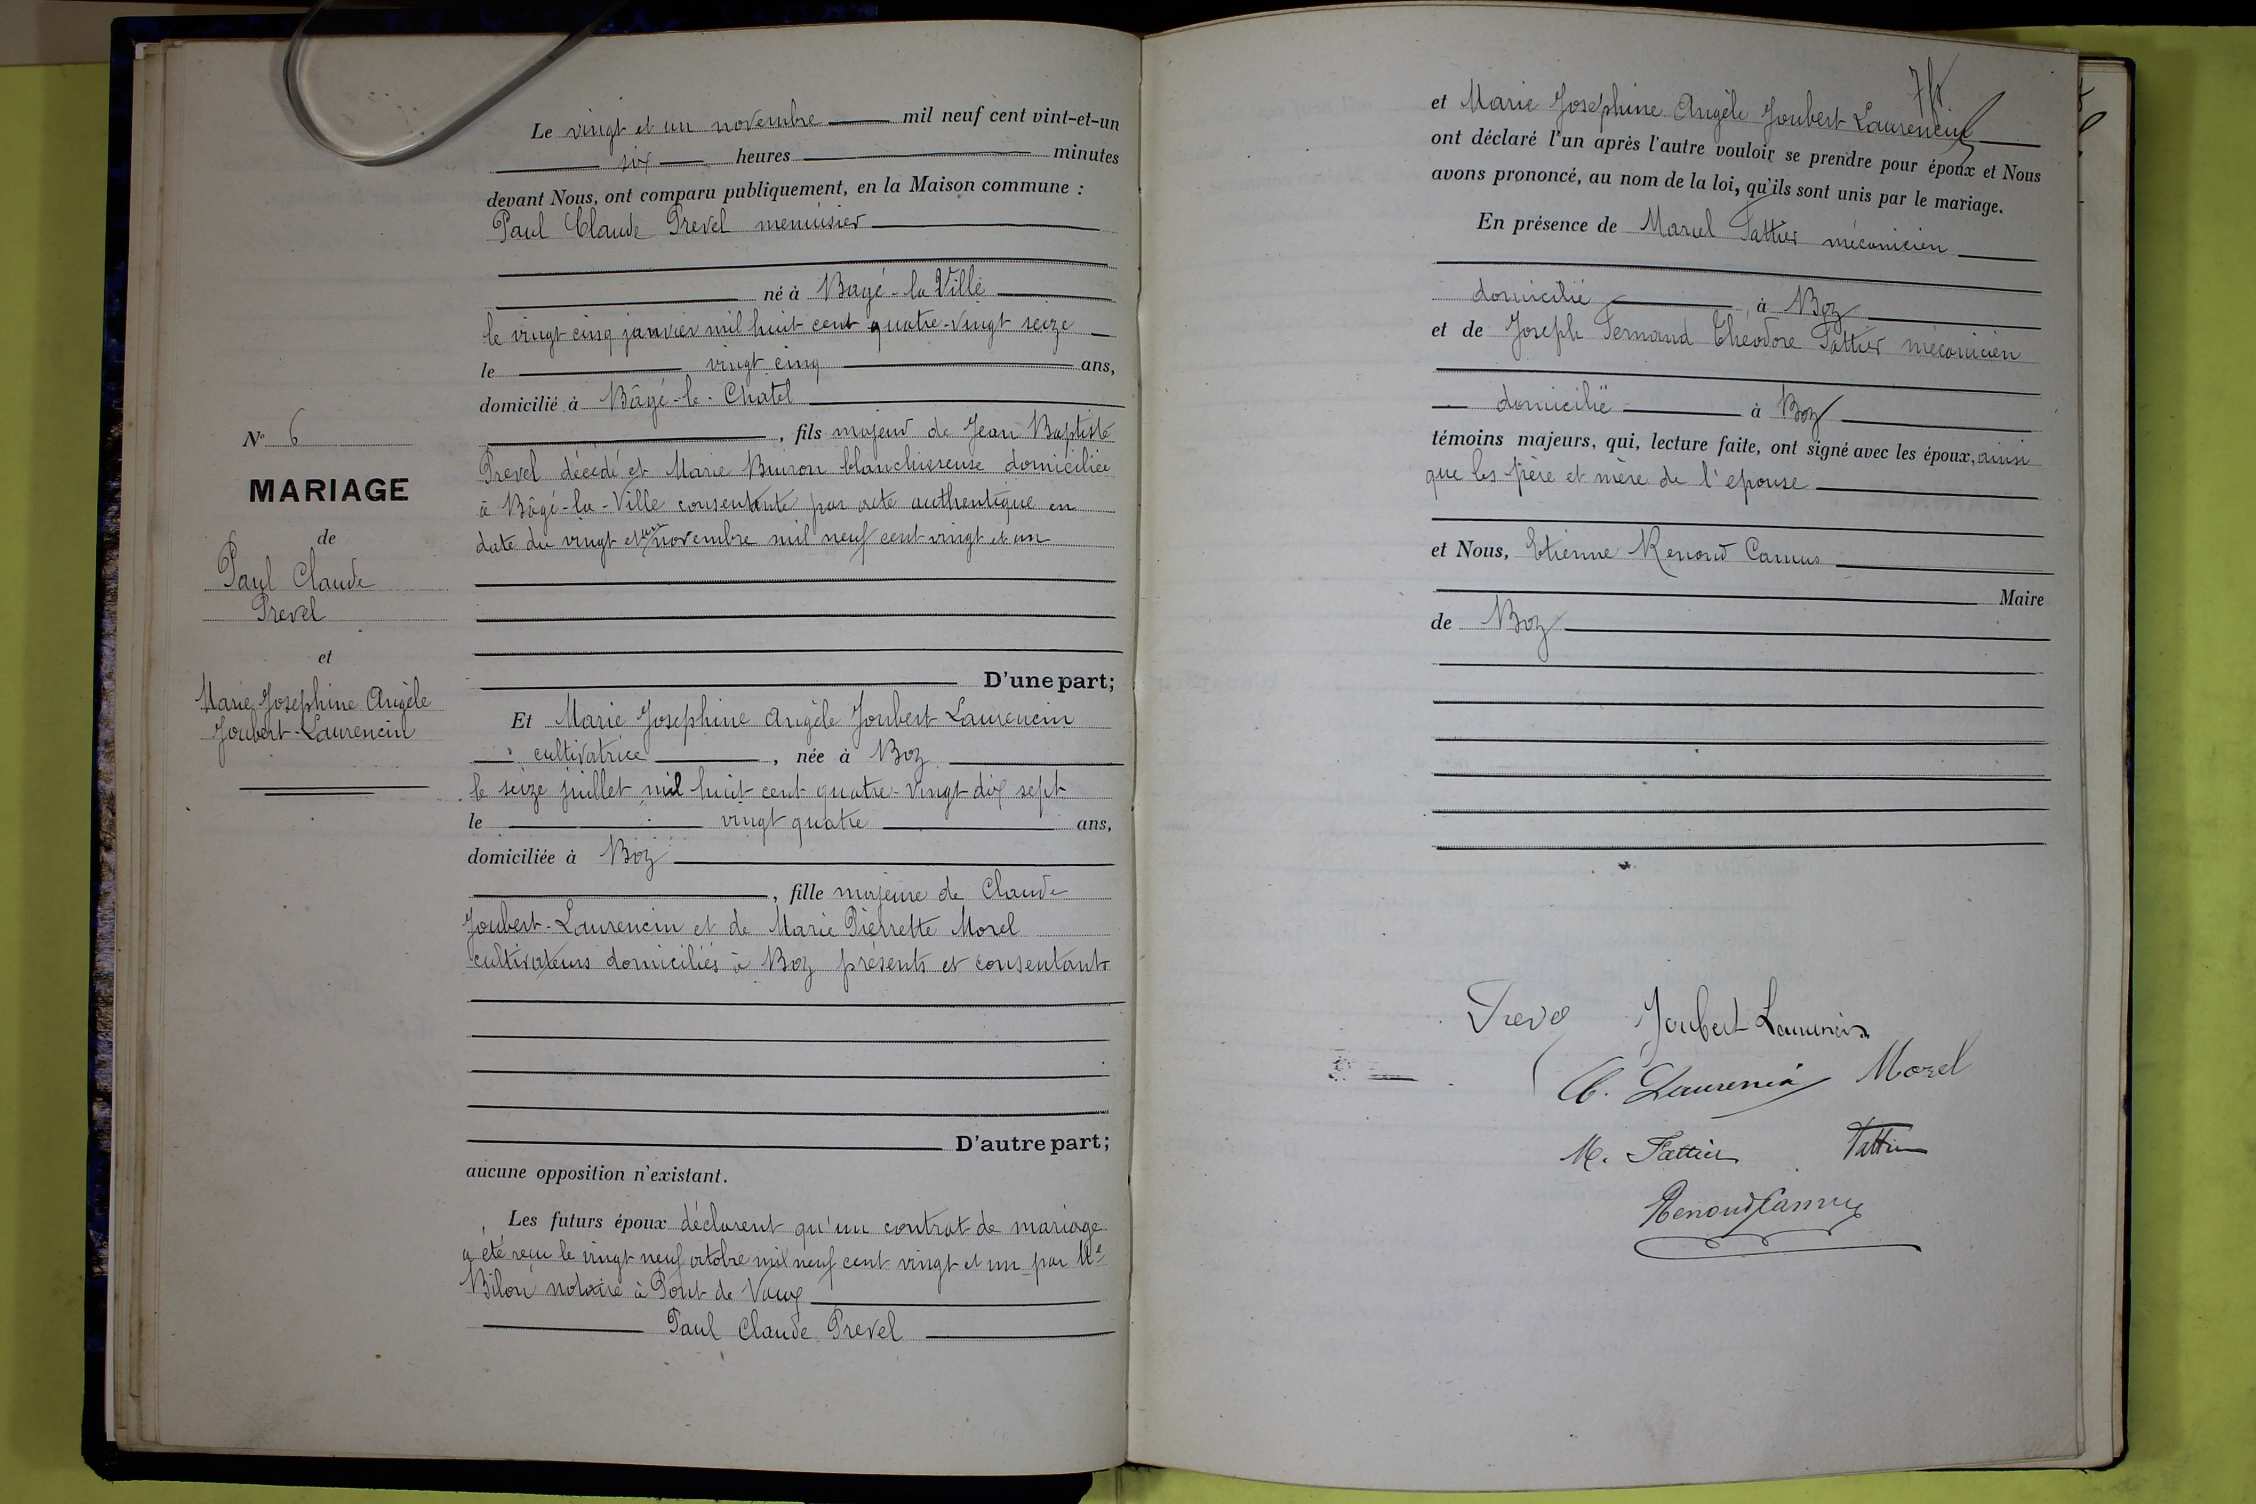 N° 6
MARIAGE
de
Paul Claude
Prevel
et
Marie Josephine Angèle
Joubert-Laurencin
Le vingt et un novembre mil neuf cent vint-et-un
six heures minutes
devant Nous, ont comparu publiquement, en la Maison commune :
Paul Claude Prevel menuisier
né à Bagé-la Ville
le vingt cinq janvier mil huit cent quatre-vingt seize
le vingt cinq ans,
domicilié à Bâgé-le-Chatel
, fils majeur de Jean Baptiste
Prevel décédé et Marie Buiron blanchisseuse domiciliée
à Bâgé-la-Ville consentante par acte authentique en
date du vingt et un novembre mil neuf cent vingt et un
D'une part;
Et Marie Josephine Angèle Joubert Laurencin
cultivatrice , née à Boz
le seize juillet mil huit cent quatre-vingt dix sept
le vingt quatre ans,
domiciliée à Boz
, fille majeure de Claude
Joubert-Laurencin et de Marie Pierrette Morel
cultivateurs domiciliés à Boz présents et consentants
D'autre part;
aucune opposition n'existant.
Les futurs époux déclarent qu'un contrat de mariage
a été reçu le vingt neuf octobre mil neuf cent vingt et un par Me
notaire à Pont de Vaux
Paul Claude Prevel
et Marie Josephine Angèle Joubert Laurencin
ont déclaré l'un après l'autre vouloir se prendre pour époux et Nous
avons prononcé, au nom de la loi, qu'ils sont unis par le mariage.
En présence de Marcel Tattier mécanicien
domicilié à Boz
et de Joseph Fernand Théodore Tattier mécanicien
domicilié à Boz
témoins majeurs, qui, lecture faite, ont signé avec les époux, ainsi
que les père et mère de l'épouse
et Nous, Etienne Renoud Camus
Maire
de Boz
Prevel Joubert Laurencin
C. Laurencin Morel
M. Tattier Tattier
Renoud Camus